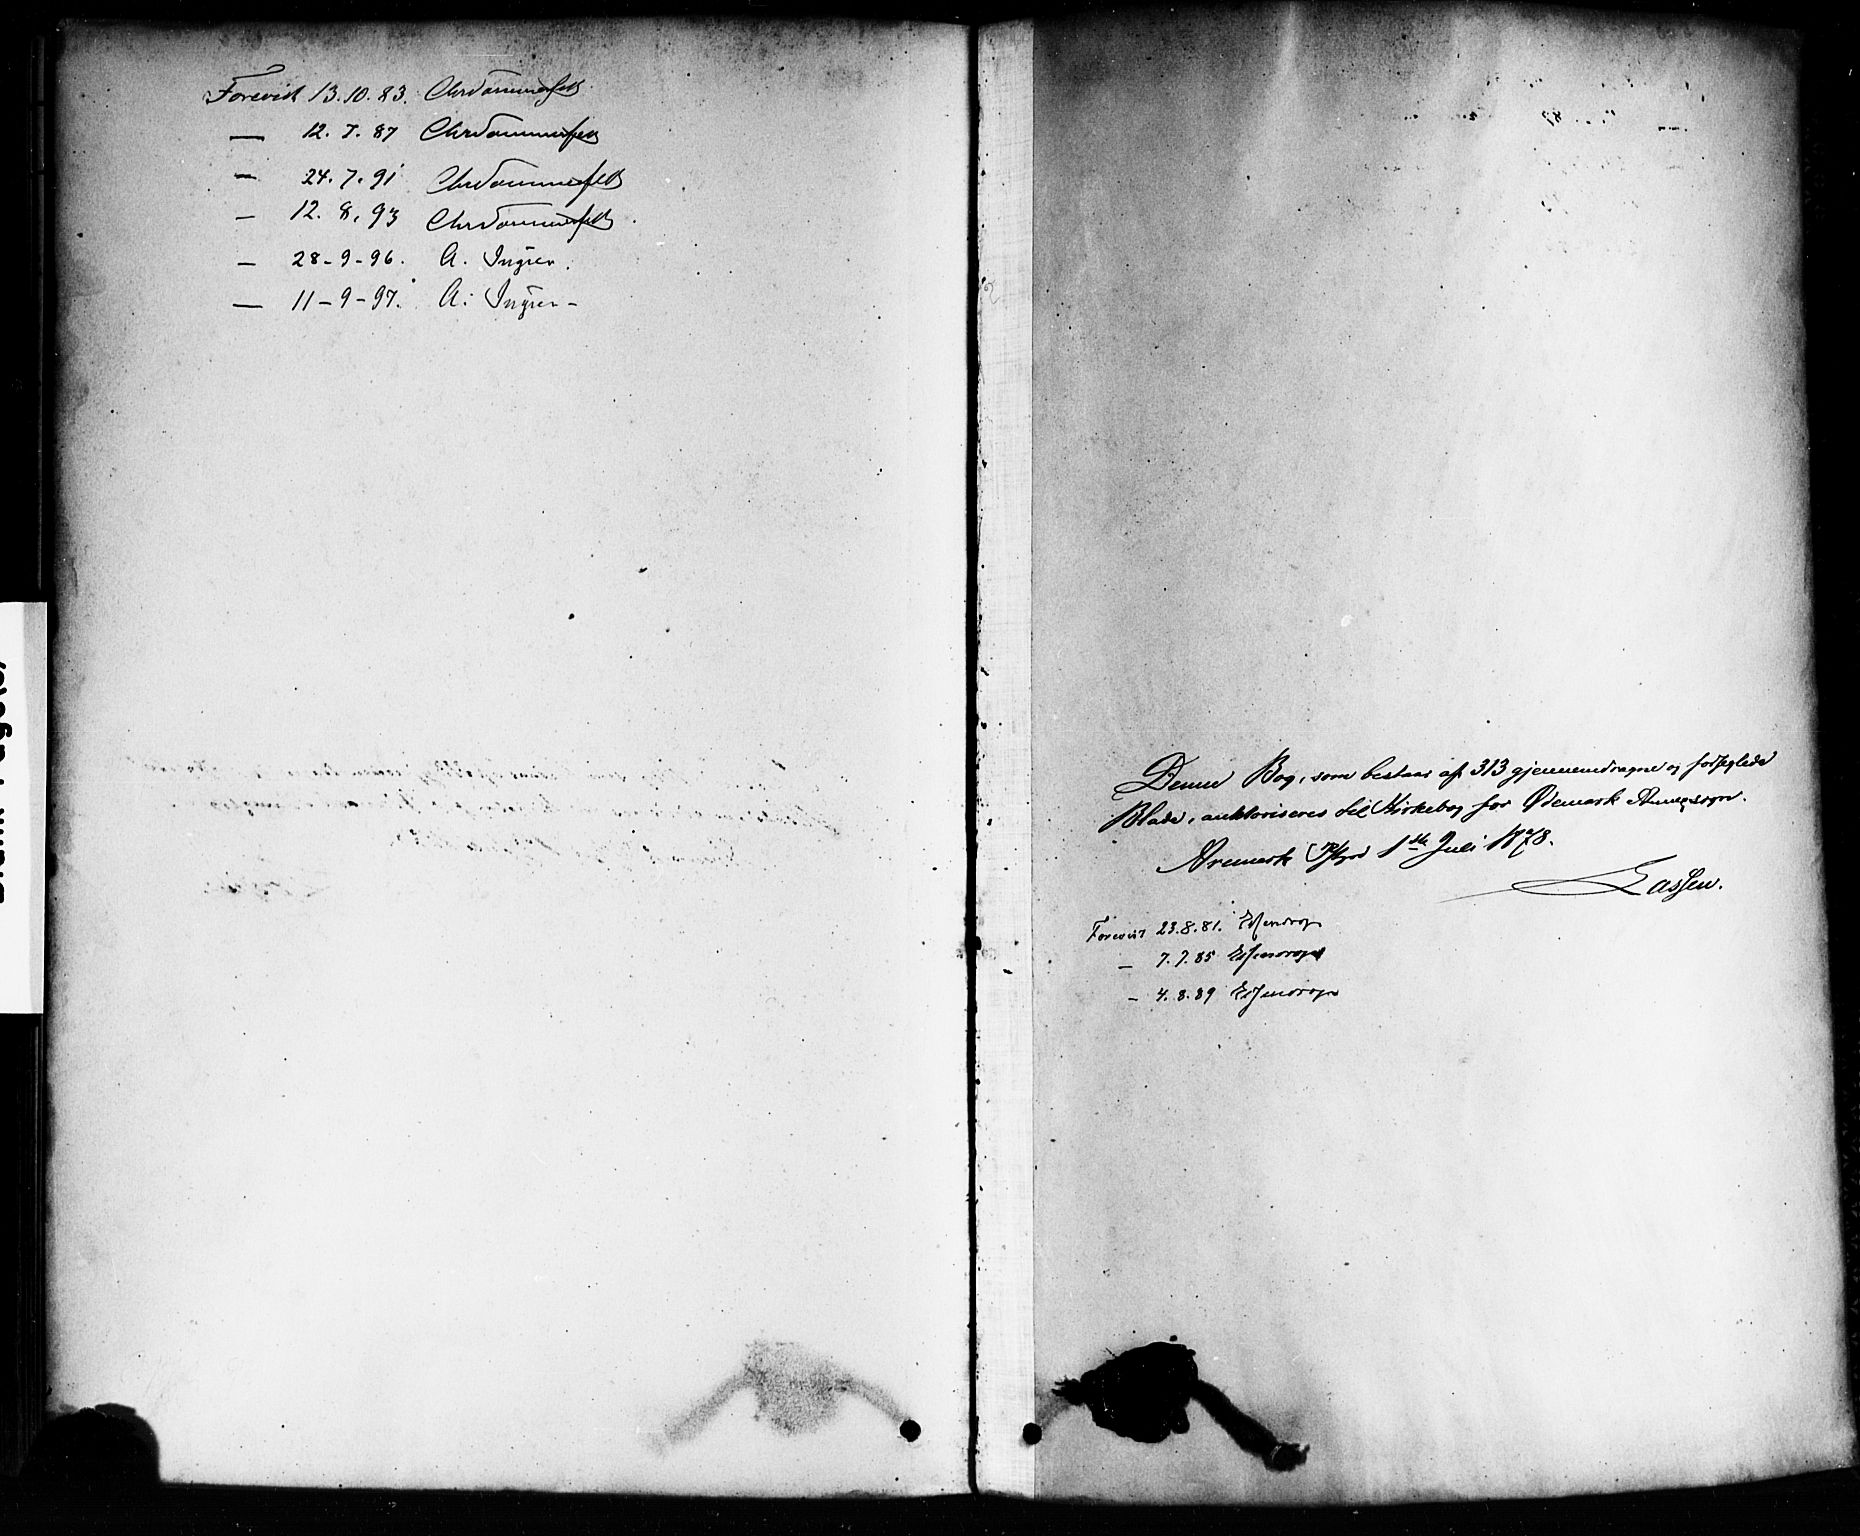 Forevist 13.10.83. Chr Sommerfelt
— 12.7.87 Chr Sommerfelt
— 24.7.91 Chr Sommerfelt
— 12.8.93 Chr Sommerfelt.
— 28-9-96. A. Ingier.
— 11-9-97. A. Ingier-
Denne Bog, som bestaar af 313 gjennemdragne og forseglede
Blade, auktoriseres til Kirkebog for Ødemark Annexsogn.
Aremark Pgrd 1ste Juli 1878.
Lassen.
Forevist 23.8.81. Essendrop
— 7.7.85 Essendrop
— 4.8.89 Essendrop